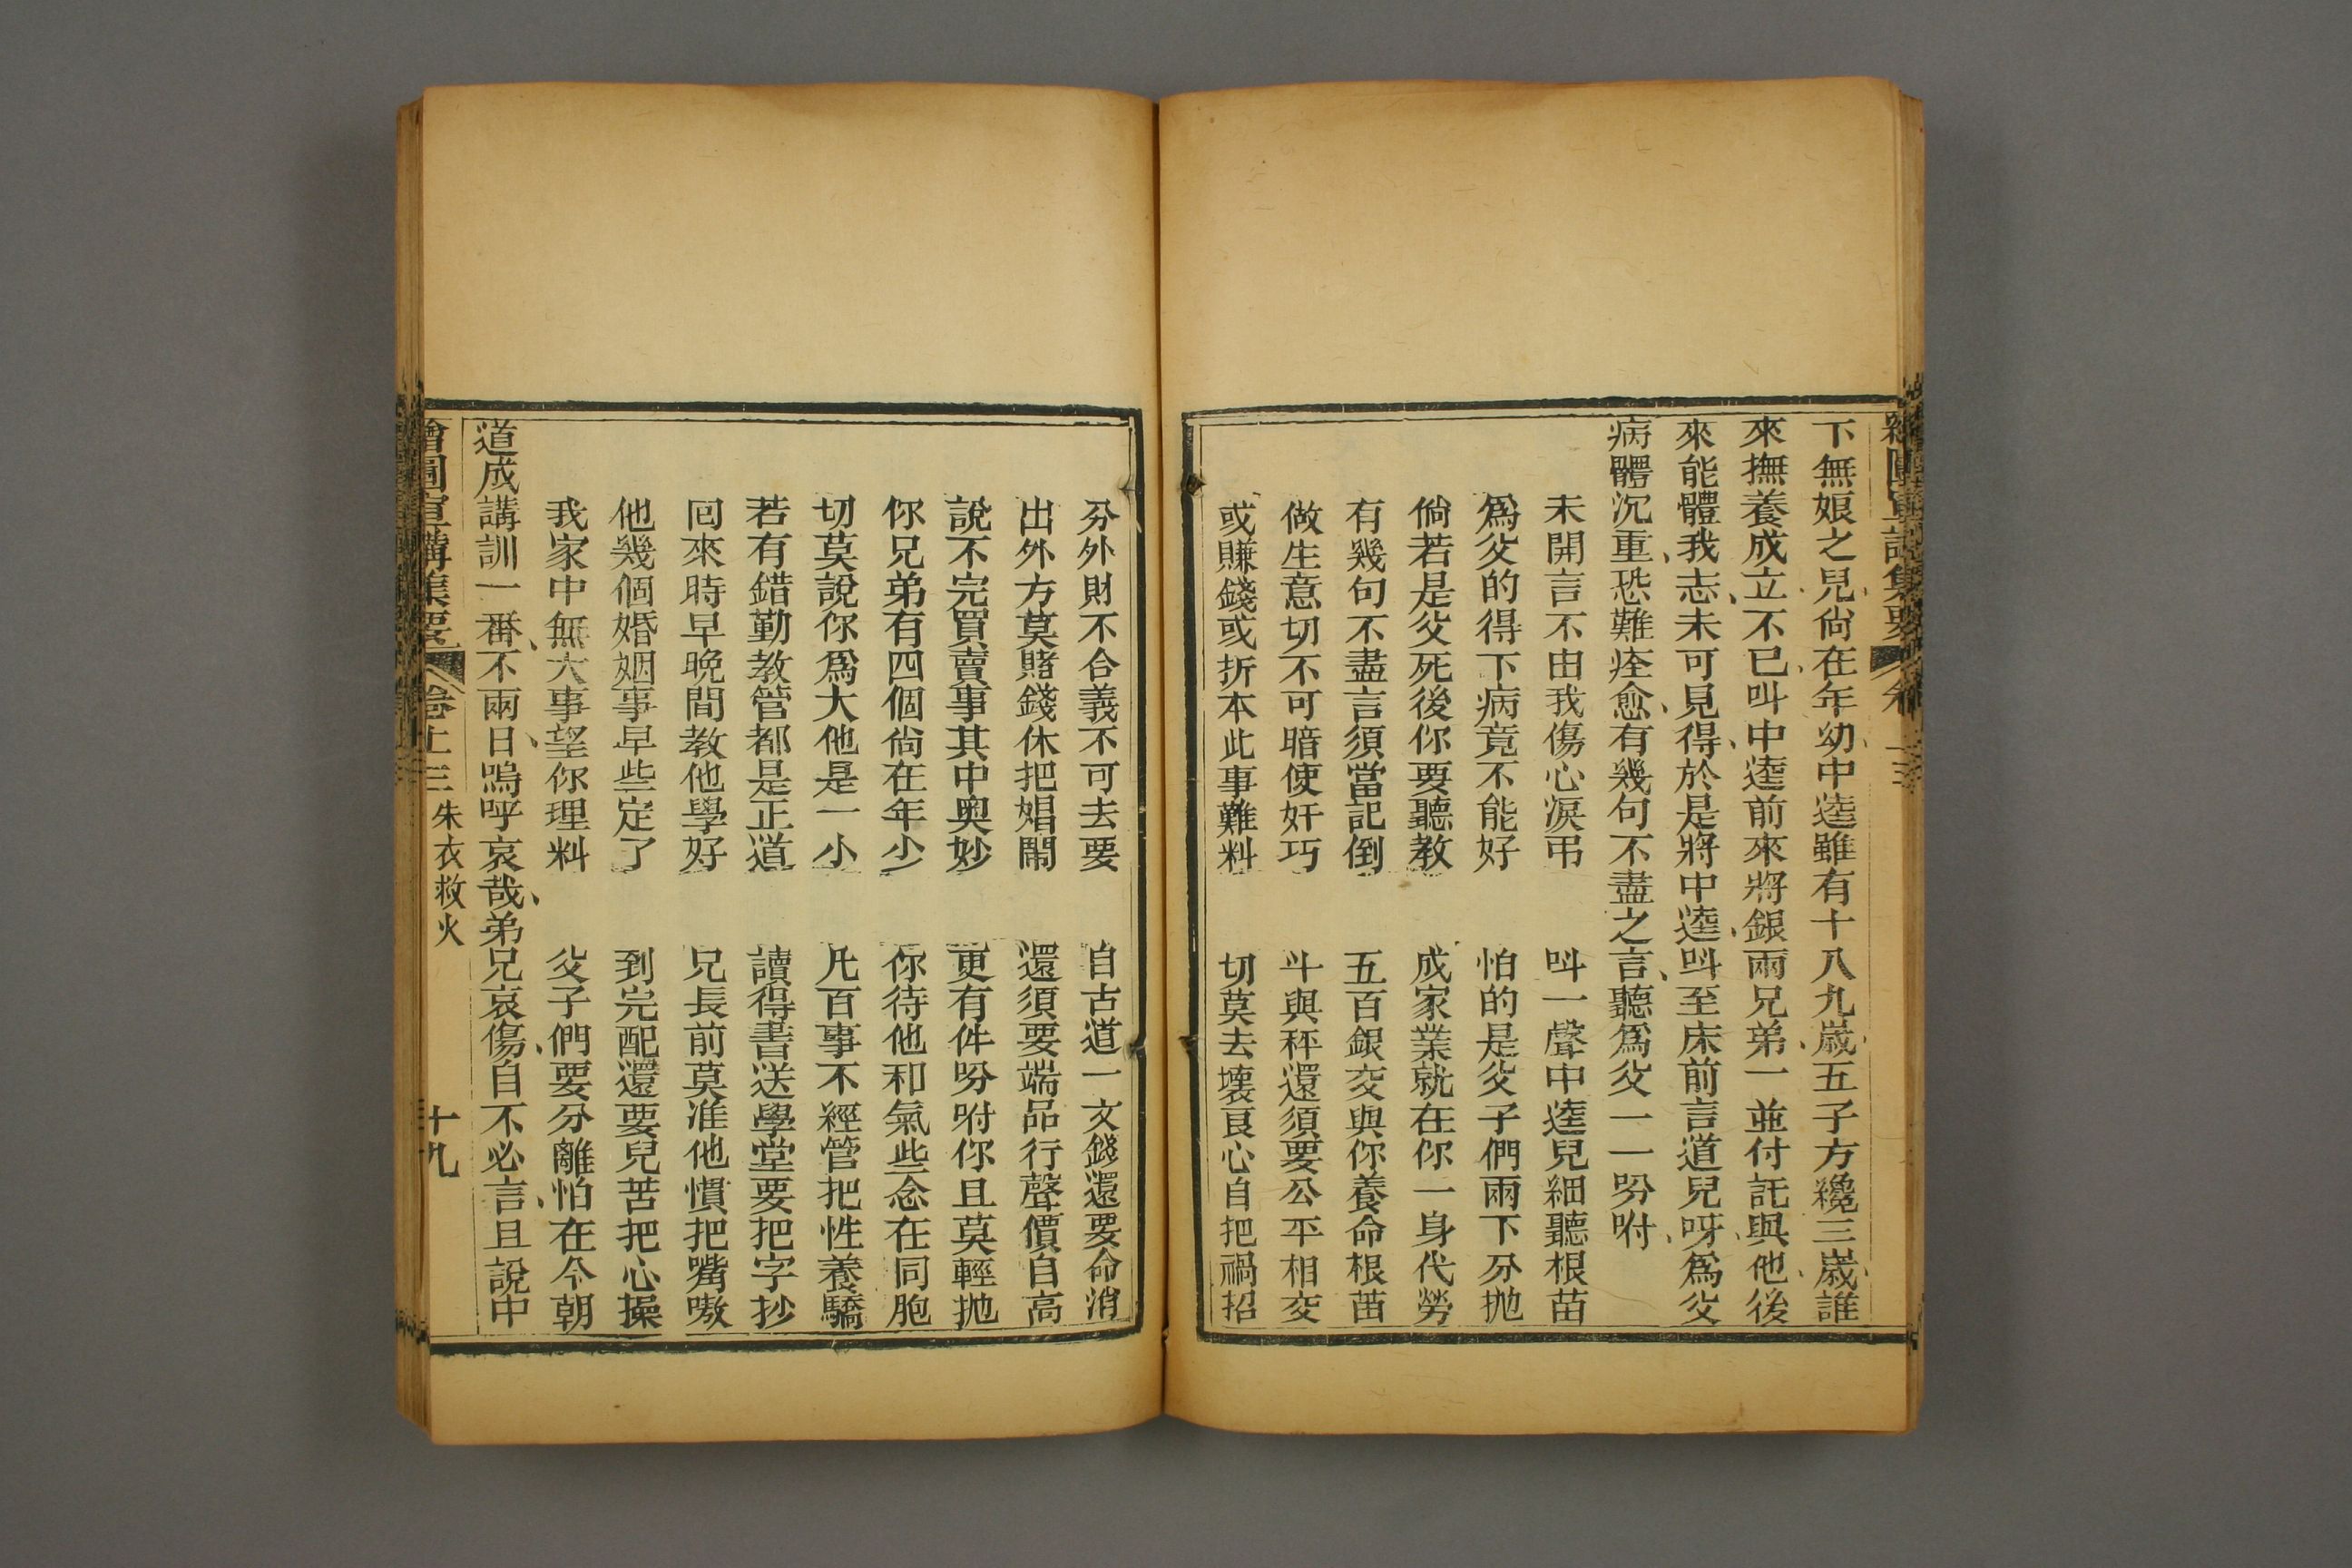 下無娘之兒尙在年幼中逵雖有十八九歲五子方纔三歲誰
來撫養成立不已呌中逵前來將銀兩兄弟一並付託與他後
來能體我志未可見得於是將中逵呌至床前言道兒呀爲父
病體沉重恐難痊愈有幾句不盡之言聽爲父一一吩咐
未開言不由我傷心淚弔　呌一聲中逵兒細聽根苗
爲父的得下病竟不能好　怕的是父子們兩下分拋
倘若是父死後你要聽教　成家業就在你一身代勞
有幾句不盡言須當記倒　五百銀交與你養命根苗
做生意切不可暗使奸巧　斗與秤還須要公平相交
或賺錢或折本此事難料　切莫去壞良心自把禍招
分外財不合義不可去要　自古道一文錢還要命消
出外方莫賭錢休把娼闝　還須要端品行聲價自高
說不完買賣事其中奧妙　更有件吩咐你且莫輕拋
你兄弟有四個尙在年少　你待他和氣些念在同胞
切莫說你爲大他是一小　凢百事不經管把性養驕
若有錯勤教管都是正道　讀得書送學堂要把字抄
囘來時早晚間教他學好　兄長前莫准他慣把嘴嗷
他幾個婚姻事早些定了　到完配還要兒苦把心操
我家中無大事望你理料　父子們要分離怕在今朝
道成講訓一番不兩日嗚呼哀哉弟兄哀傷自不必言且說中
繪圖宣講集要　卷十三　朱衣救火　十九